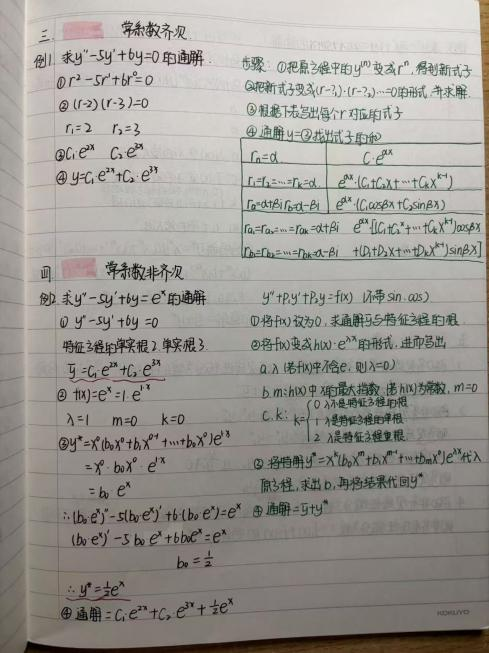 三. 常系数齐次
例1. 求y''-5y'+6y=0的通解.
① r²-5r'+6r⁰=0
② (r-2)(r-3)=0
r₁=2 r₂=3
③ C₁·e²ˣ C₂·e³ˣ
④ y=C₁·e²ˣ+C₂·e³ˣ
步骤: ①把原方程中的y⁽ⁿ⁾变成rⁿ, 得到新式子
②把新式子变成(r-r₁)·(r-r₂)…=0的形式, 并求解.
③根据下表写出每个r对应的式子
④通解y=③找出式子的和
rₙ=α C·e^αx
r₁=r₂=…=rₖ=α e^αx·(C₁+C₂x+…+Cₖx^k-1)
rₐ=α+βi r_b=α-βi e^αx·(C₁cosβx+C₂sinβx)
rₐ₁=rₐ₂=…=rₐₖ=α+βi e^αx[(C₁+C₂x+…+Cₖx^k-1)cosβx
r_b₁=r_b₂=…=r_bk=α-βi +(D₁+D₂x+…+Dₖx^k-1)sinβx]
四 常系数非齐次
例2. 求y''-5y'+6y=eˣ的通解
① y''-5y'+6y=0
特征方程的单实根2 单实根3.
ȳ=C₁e²ˣ+C₂·e³ˣ
② f(x)=eˣ=1·e^1·x
λ=1 m=0 k=0
③ y*=x⁰(b₀x⁰+b₁x^0-1+…+b₀x⁰)e^1·x
=x⁰·b₀x⁰·e^1·x
=b₀ eˣ
∴(b₀·eˣ)''-5(b₀·eˣ)'+6·(b₀·eˣ)=eˣ
(b₀·eˣ)'-5b₀eˣ+6b₀eˣ=eˣ
b₀=1/2
∴ y*=½eˣ
④ 通解=C₁e²ˣ+C₂ e³ˣ+½eˣ
y''+P₁y'+P₂y=f(x) (不带sin.cos)
①将f(x)设为0, 求通解ȳ与特征方程的根.
②将f(x)变成h(x)·e^λx的形式, 进而写出
a. λ (若f(x)中不含e, 则λ=0)
b. m: h(x)中x的最大指数 (若h(x)为常数, m=0
c. k: k={ 0 λ不是特征方程的根
1 λ是特征方程的单根
2 λ是特征方程重根
③ 将特解y*=xᵏ(b₀xᵐ+b₁x^m-1+…+bₘx⁰)e^λx代入
原方程, 求出b, 再将结果代回y*
④ 通解=ȳ+y*
KOKUYO